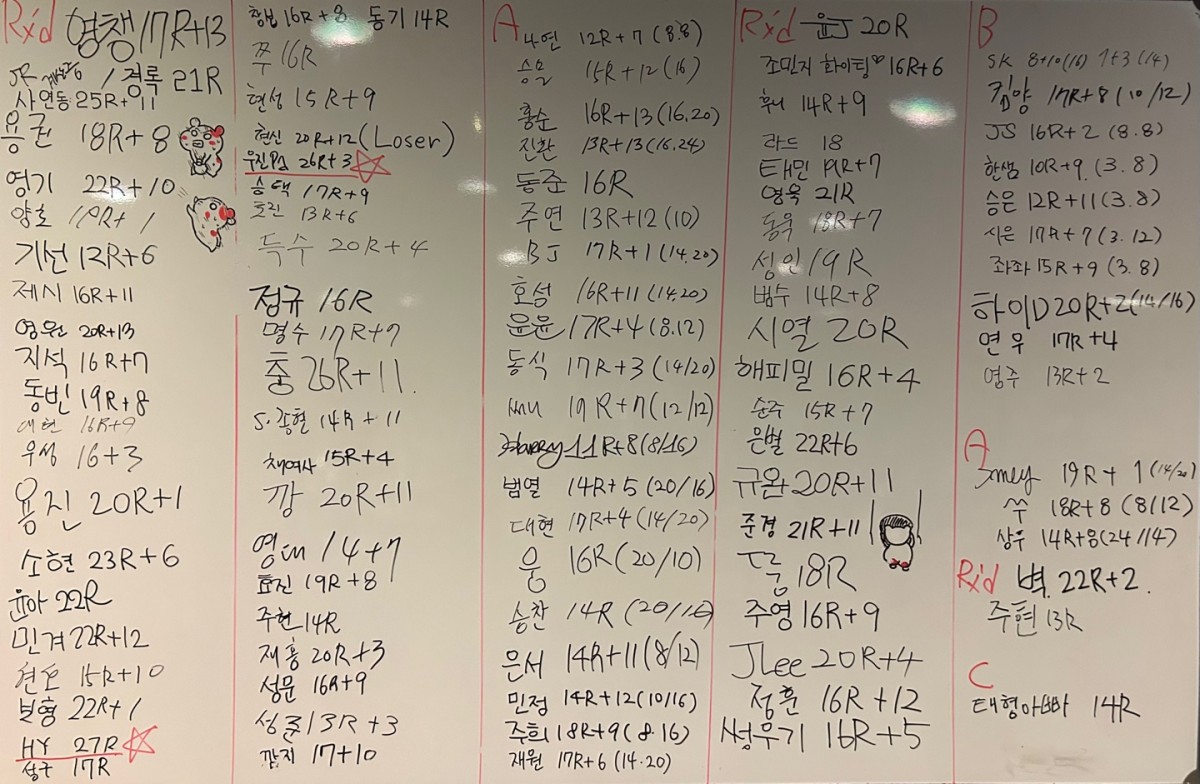 Rx'd 영챙 17R+13
JR / 경록 21R
사연동 25R+11
용권 18R+8
영기 22R+10
양호 19R+1
기선 12R+6
제시 16R+11
영원 20R+13
지석 16R+7
동빈 19R+8
대현 16R+9
우성 16+3
용진 20R+1
소현 23R+6
윤아 22R
민겨 22R+12
현호 15R+10
보형 22R+1
HY 27R
성구 17R
창범 16R+8 동기 14R
쭈 16R
현성 15R+9
현신 20R+12 (Loser)
우진PJ 26R+3
승택 17R+9
호진 13R+6
득수 20R+4
정규 16R
명수 17R+7
춤 26R+11.
S.광현 14R+11
채여사 15R+4
깡 20R+11
영대 14+7
효진 19R+8
주현 14R
재홍 20R+3
성문 16R+9
성준 13R+3
깜지 17+10
A 나연 12R+7 (8.8)
승모 15R+12 (16)
홍순 16R+13 (16.20)
진환 13R+13 (16.24)
동준 16R
주연 13R+12 (10)
BJ 17R+1 (14.20)
호섬 16R+11 (14.20)
윤윤 17R+4 (8.12)
동식 17R+3 (14/20)
써니 19R+7 (12/12)
Harry 11R+8 (8/16)
범열 14R+5 (20/16)
대현 17R+4 (14/20)
웅 16R (20/10)
승찬 14R (20/16)
은서 14R+11 (8/12)
민정 14R+12 (10/16)
주희 18R+9 (8.16)
재원 17R+6 (14.20)
Rx'd 윤J 20R
조민지 화이팅♡ 16R+6
훠니 14R+9
라드 18
태민 19R+7
영욱 21R
동욱 18R+7
성인 19R
범수 14R+8
시열 20R
해피밀 16R+4
순주 15R+7
은별 22R+6
규완 20R+11
준경 21R+11
18R
주영 16R+9
JLee 20R+4
정훈 16R+12
썽우기 16R+5
B
SK 8+10 (16) 7+3 (14)
킴양 17R+8 (10/12)
JS 16R+2 (8.8)
한샘 10R+9 (3.8)
승은 12R+11 (3.8)
시은 17R+7 (3.12)
좌좌 15R+9 (3.8)
하이D 20R+2 (14/16)
연우 17R+4
영주 13R+2
A
3mey 19R+1 (14/20)
쑤 18R+8 (8/12)
상우 14R+8 (24/14)
Rx'd 벽 22R+2.
주현 13R
C
태형아빠 14R